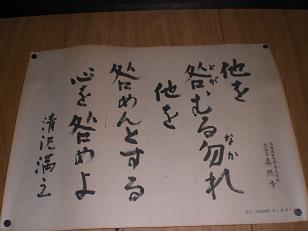 他を
咎むる勿れ
とが
なか
他を
咎めんとする
心を咎めよ
清沢満之